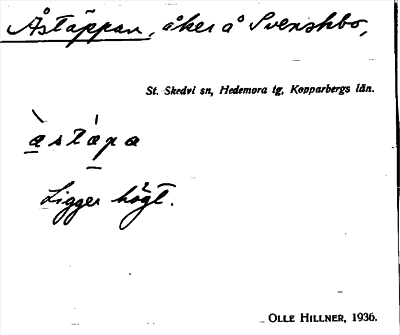 Åstäppan, åker å Svenskbo,
St. Skedvi sn, Hedemora tg, Kopparbergs län.
àstápa
Ligger högt.
OLLE HILLNER, 1936.